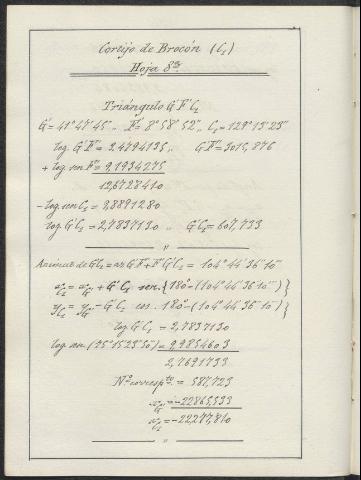 Cortijo de Brocón (C₁)
Hoja 8ª
Triángulo G'F'C₁
G'=41°47'45", F'=8°58'52", C₁=129°13'23"
log G'F'=3,4794135,, G'F'=3015,876
+ log sen F'=9,1934275
12,6728410
-log sen C₁=9,8891280
log G'C₁=2,7837130 ,, G'C₁=607,733
"
Azimut de G'C₁=az G'F'+F'G'C₁=104°44'36"10'''
x_C₁=x_G'+G'C₁ sen. {180°-(104°44'36"10''')}
y_C₁=y_G'-G'C₁ cos. 180°-(104°44'36"10''')}
log G'C₁=2,7837130
log sen (75°15'23"50''')=9,9854603
2,7691733
Nº correspte=587,723
x_G'=-22865,533
x_C₁=-22277,810
"